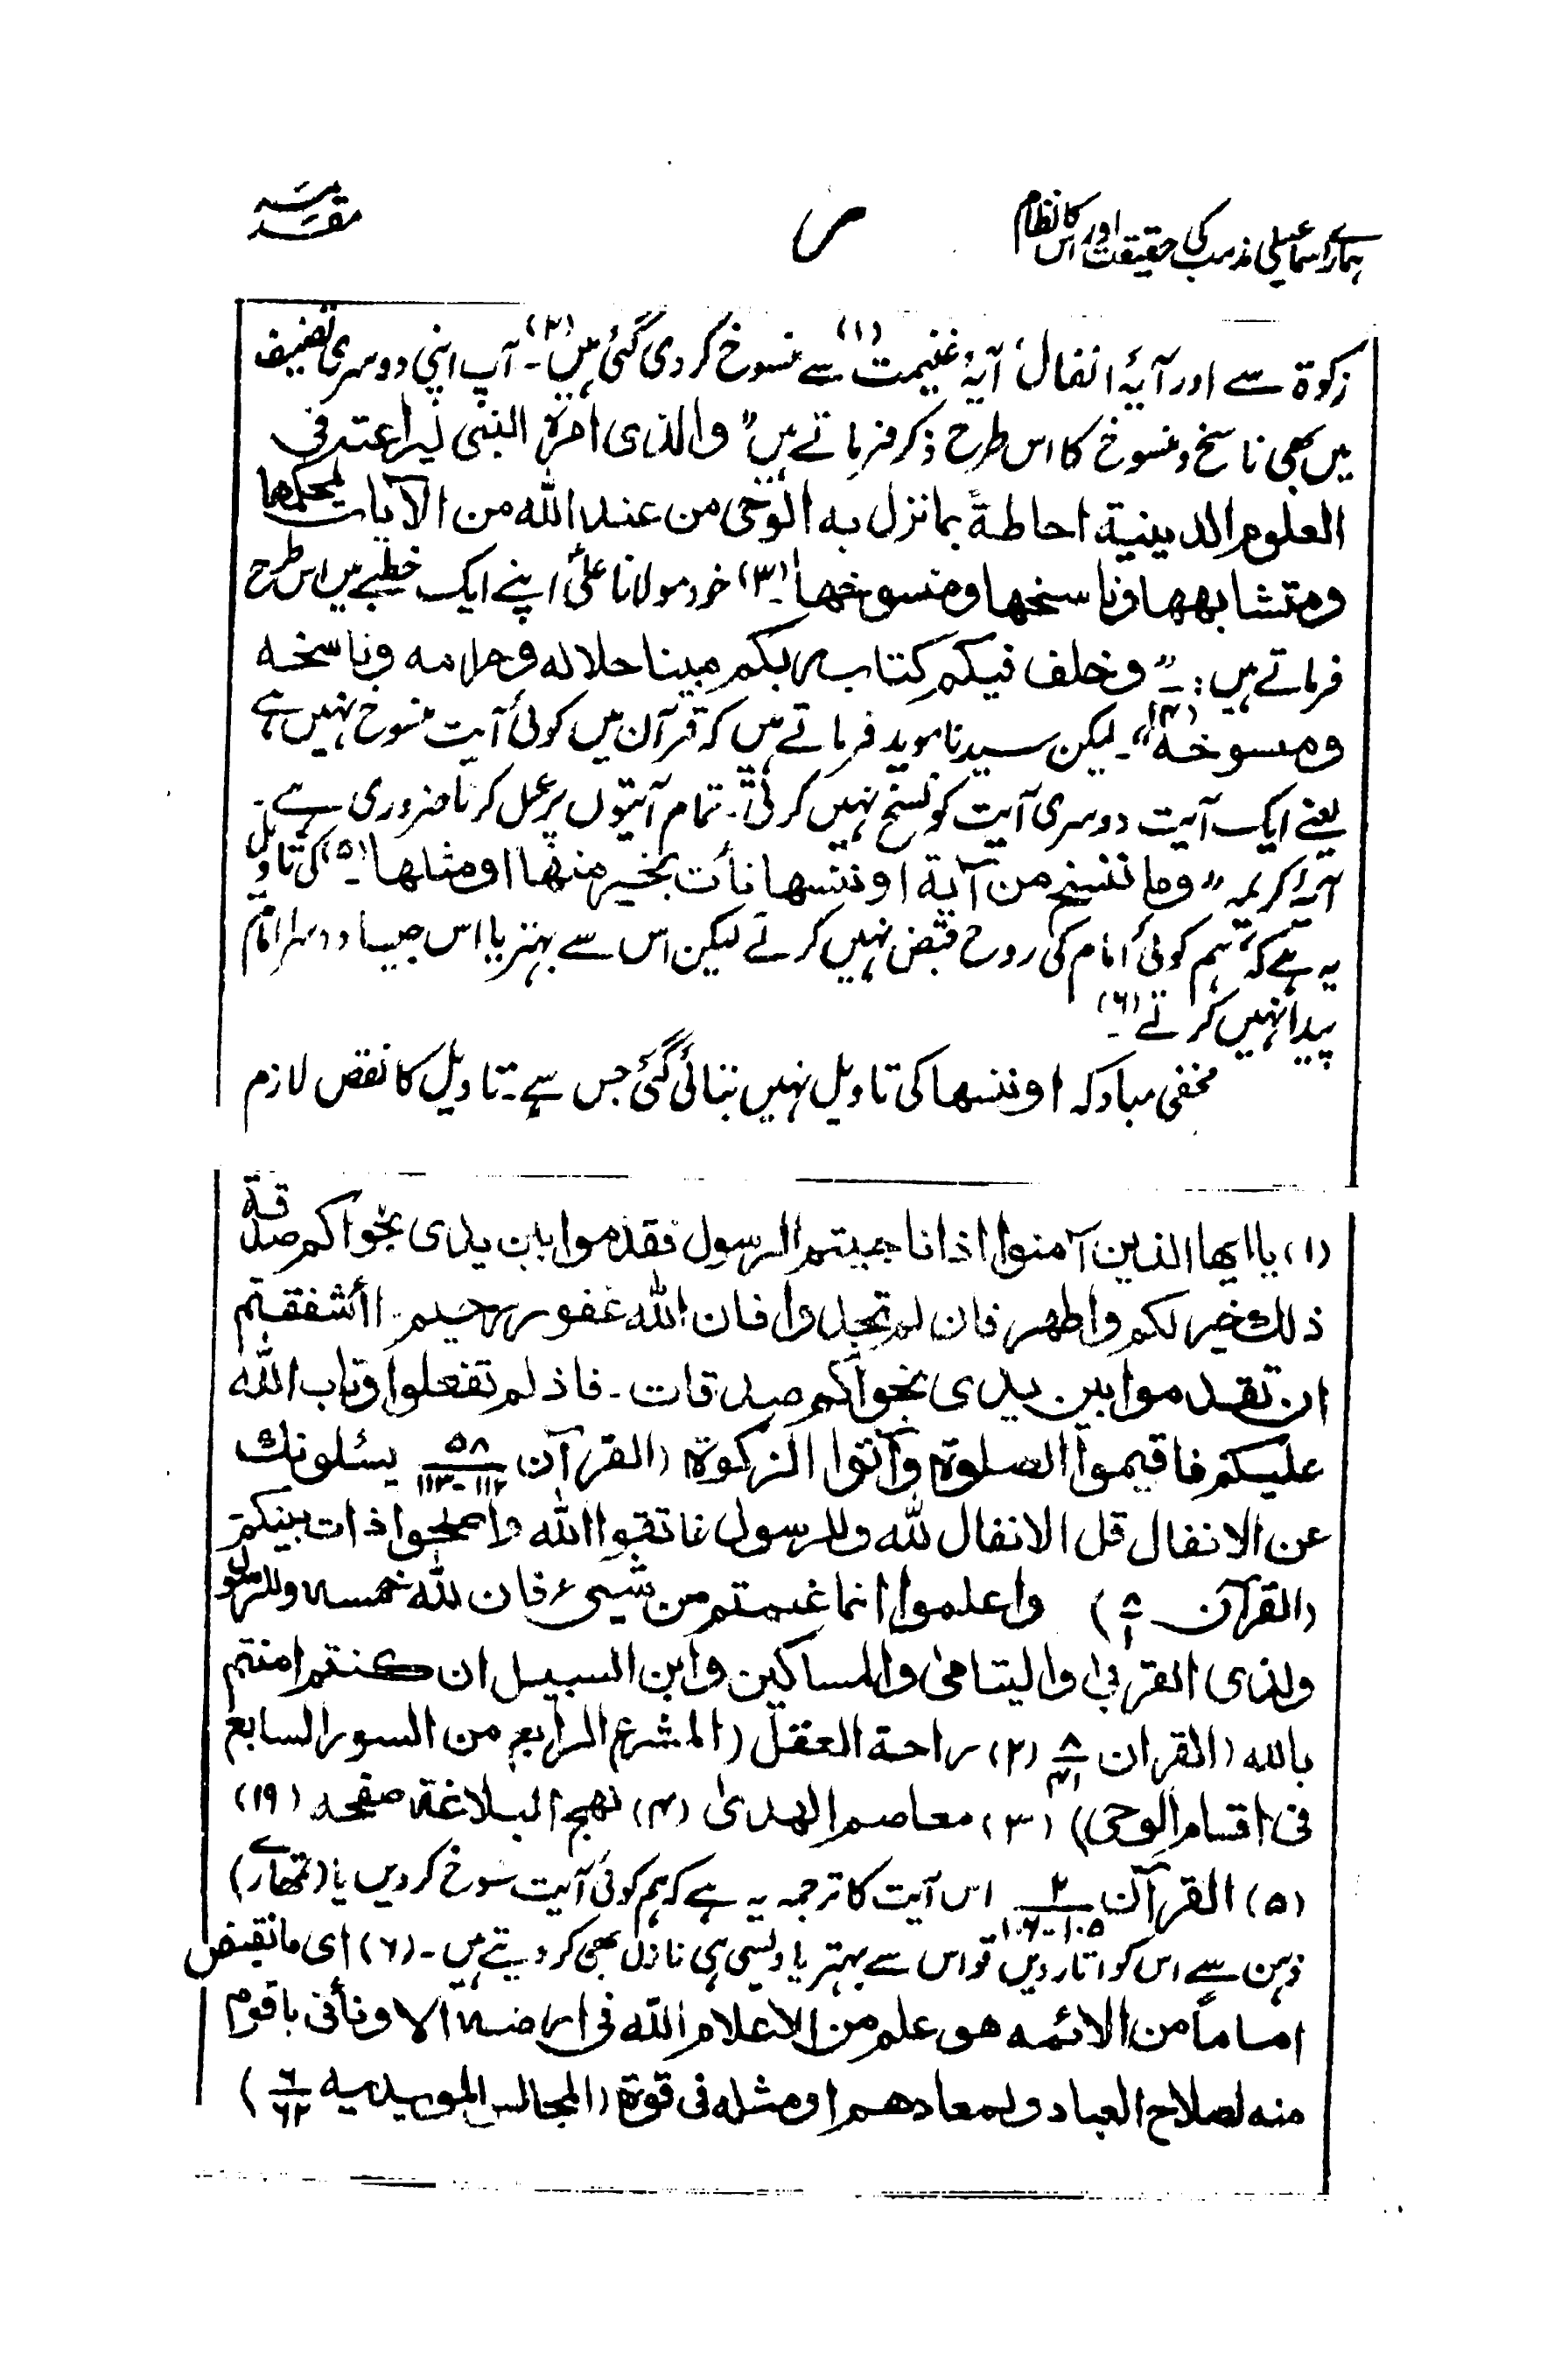 ہمارے اسماعیلی مذہب کی حقیقت اور اس کا نظام
ص
مقدمہ
زکوۃ سے اور آیۂ انفال، آیۂ غنیمت(۱) سے منسوخ کر دی گئی ہیں(۲)۔ آپ اپنی دوسری تصنیف
میں بھی ناسخ و منسوخ کا اس طرح ذکر فرماتے ہیں " والذی احرۃ النبی لیراعتہ فی
العلوم الدینیة احاطةً بما نزل به الوحی من عند الله من الآیات لمحکمها
ومتشابهها وناسخها ومنسوخها (۳)۔ خود مولانا علیؑ اپنے ایک خطبے میں اس طرح
فرماتے ہیں :۔ " وخلف فیکم کتاب ربکم مبینا حلاله وحرامه وناسخه
ومنسوخه"(۴)۔ لیکن سیدنا موید فرماتے ہیں کہ قرآن میں کوئی آیت منسوخ نہیں ہے
یعنے ایک آیت دوسری آیت کو نسخ نہیں کرتی۔ تمام آیتوں پر عمل کرنا ضروری ہے۔
آیۂ کریمہ " وما ننسخ من آیة او ننسها نأت بخیر منها او مثلها۔(۵) کی تاویل
یہ ہے کہ "ہم کوئی امام کی روح قبض نہیں کرتے لیکن اس سے بہتر یا اس جیسا دوسرا امام
پیدا نہیں کرتے(۶)۔
مخفی مباد کہ او ننسها کی تاویل نہیں بتائی گئی جس سے۔ تاویل کا نقص لازم
(۱) یا ایها الذین آمنوا اذا ناجیتم الرسول فقدموا بین یدی نجواکم صدقة
ذلك خیر لکم واطهر فان لم تجدوا فان الله غفور رحیم۔ اأشفقتم
ان تقدموا بین یدی نجواکم صدقات۔ فاذ لم تفعلوا وتاب الله
علیکم فاقیموا الصلوة وآتوا الزکوة (القرآن ۵۸/۱۱۲-۱۱۳ یسئلونك
عن الانفال قل الانفال لله وللرسول فاتقوا الله واصلحوا ذات بینکم
(القرآن ۸/۱) واعلموا انما غنمتم من شیئ فان لله خمسه وللرسول
ولذی القربیٰ والیتامیٰ والمساکین وابن السبیل ان کنتم امنتم
بالله (القران ۸/۴۱ (۲) راحة العقل (المشرع الرابع من السور السابع
فی اقسام الوحی) (۳) معاصم الهدیٰ (۴) نهج البلاغة صفحه (۱۹)
(۵) القرآن ۲/۱۰۵-۱۰۶ اس آیت کا ترجمہ یہ ہے کہ ہم کوئی آیت منسوخ کر دیں یا (تمھارے)
ذہن سے اس کو اتار دیں تو اس سے بہتر یا ویسی ہی نازل بھی کر دیتے ہیں۔ (۶) ای ما نقبض
اماماً من الائمه هو علم من الاعلام الله فی ارضه الا ونأتی باقوم
منه لصلاح العباد ولمعادهم او مثله فی قوة (المجالس المویدیه ۶/۶۲)